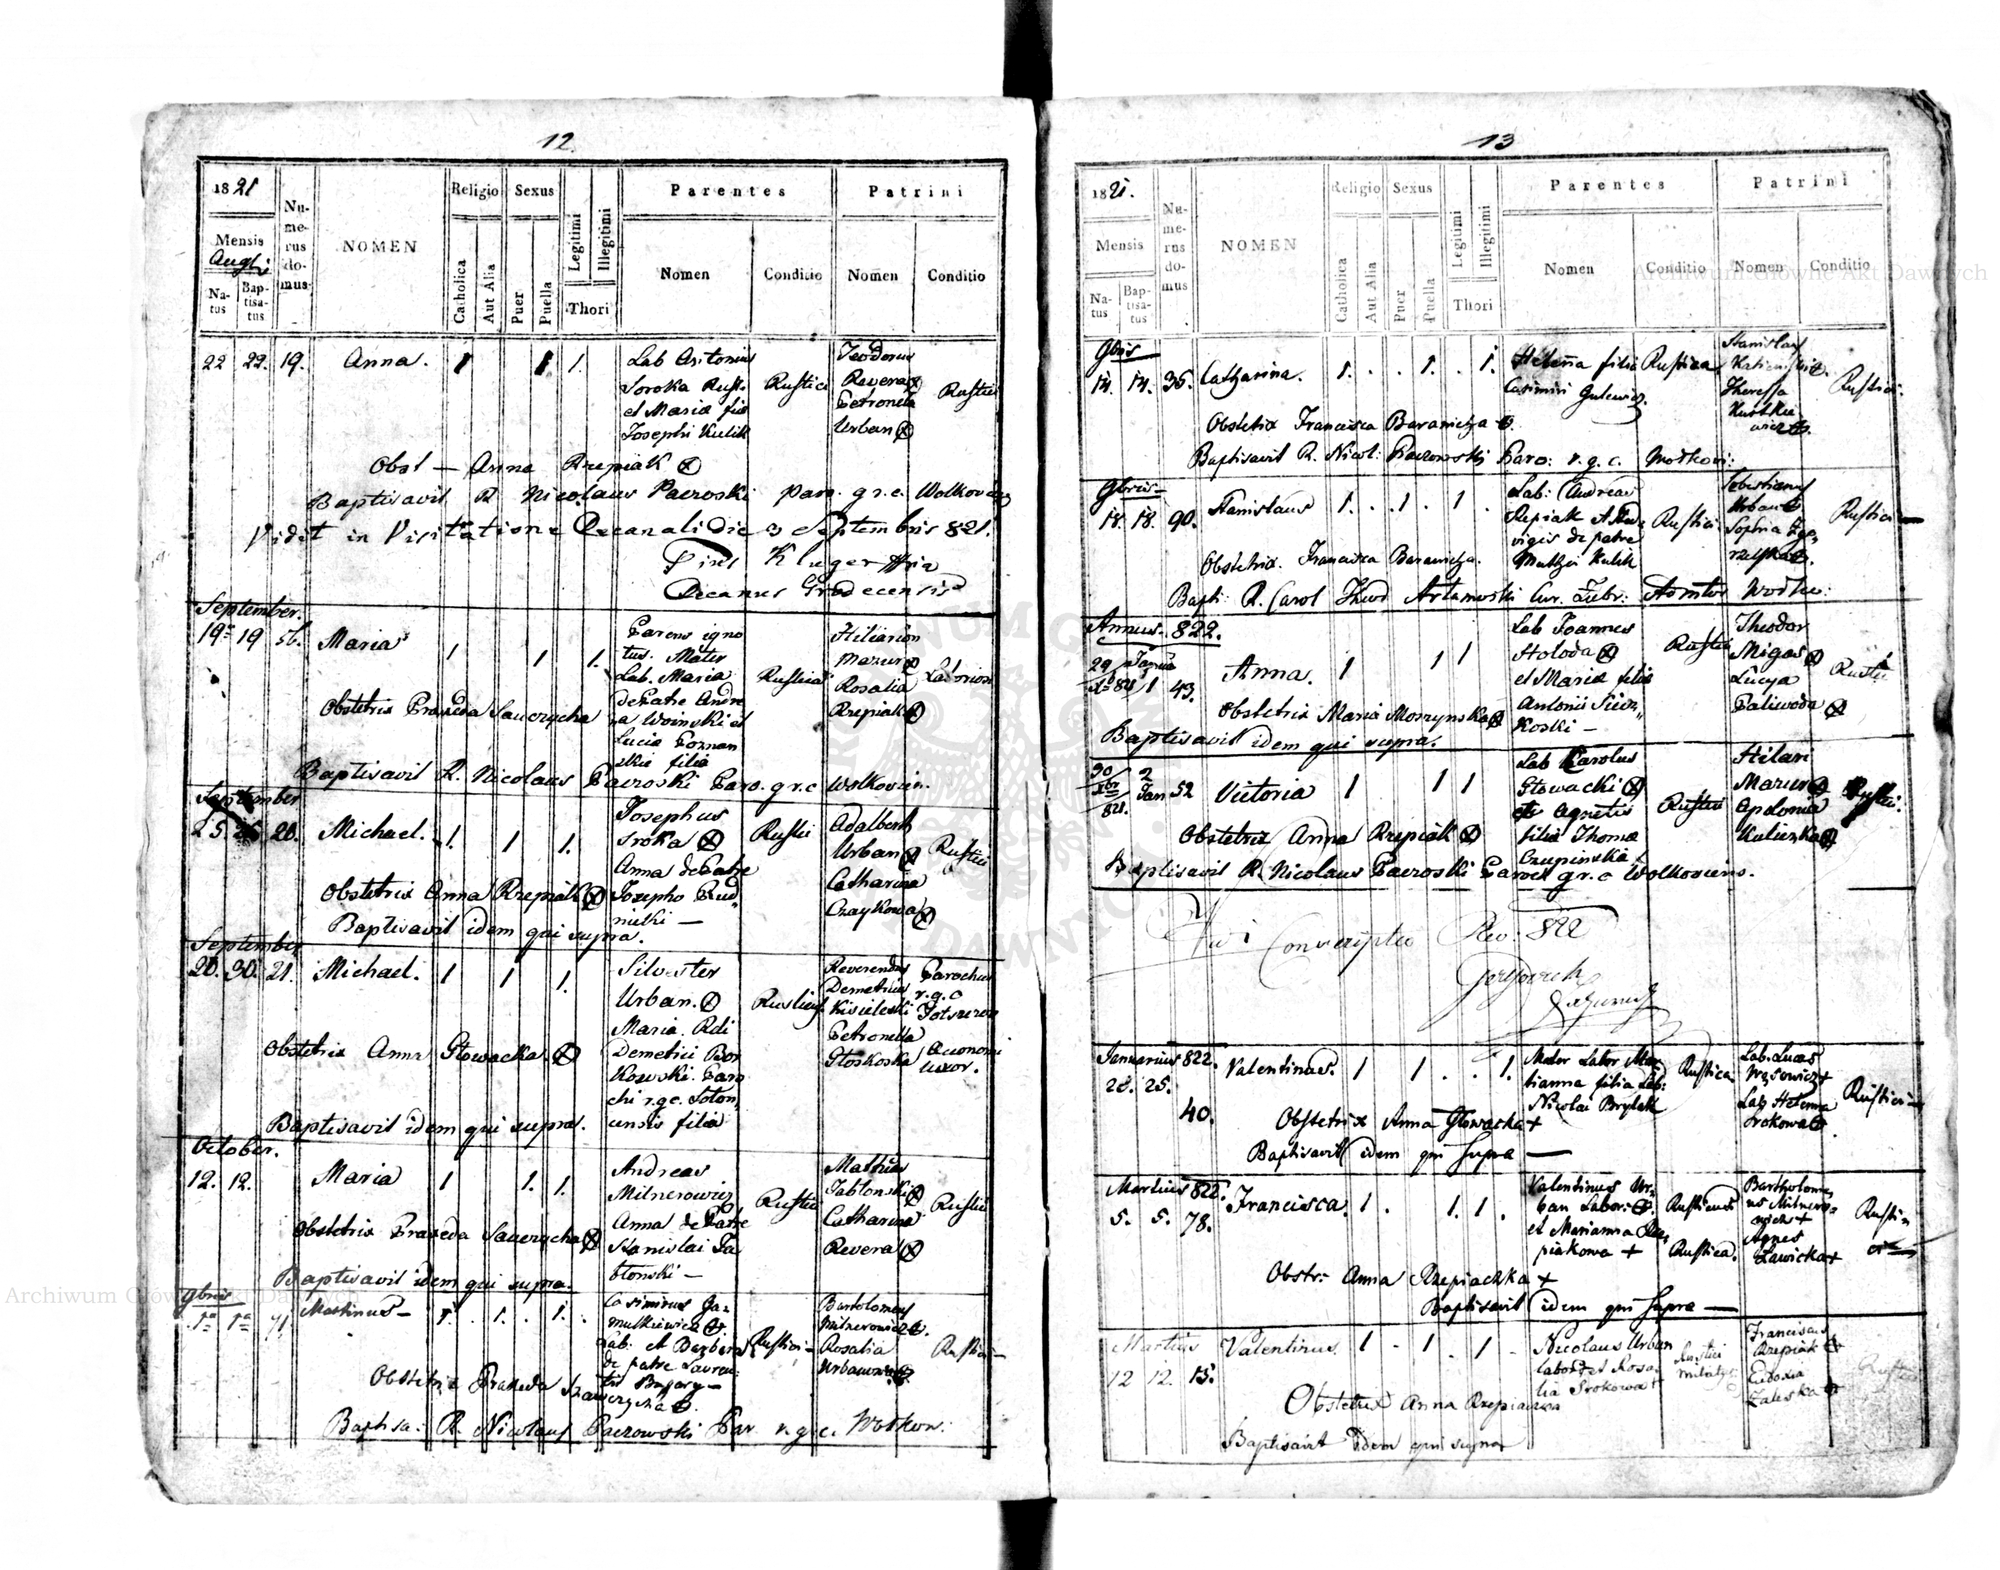 12.
1821
Mensis
Augti
Na-
tus
Bap-
tisa-
tus
Nu-
me-
rus
do-
mus
NOMEN
Religio
Catholica
Aut Alia
Sexus
Puer
Puella
Legitimi
Illegitimi
Thori
Parentes
Nomen
Conditio
Patrini
Nomen
Conditio
22 22. 19. Anna. 1 1 1.
Lab Antonius
Soroka Rust.
et Maria filia
Josephi Kulik
Rustici
Teodorus
Revera
Petronela
Urban
Rustici
Obst — Anna Rzepiak
Baptisavit R Nicolaus Paczoski paro. g r. c. Wolkoviens
Vidit in Visitatione Decanali die 3 Septembris 821.
Decanus Grodecensis
September.
19 19 56. Maria 1 1 1.
Parens igno
tus. Mater
Lab. Maria
de Patre Andre
a Woinski et
Lucia Poznan
skie filia
Rustica
Hiliarion
Mazur
Rosalia
Rzepiak
Laboriosi
Obstetrix Praxeda Sawczycha
Baptisavit R. Nicolaus Paczoski Paro. g r. c Wolkovien.
September
25. 26 20. Michael. 1. 1 1.
Josephus
Sroka
Anna de Patre
Josepho Rud-
nicki —
Rustici
Adalbert
Urban
Catharina
Czaykowa
Rustici
Obstetrix Anna Rzepiak
Baptisavit idem qui supra.
September
20. 30. 21. Michael. 1 1 1.
Silvester
Urban.
Maria. Rdi
Demetrii Bor
kowski. Paro
chi r. g c. Soton
censis filia
Rusticus
Reverendus
Demetrius
Kisieleski
Petronella
Stoskoska
Parochus
r. g. c
Economi
uxor.
Obstetrix Anna Głowacka.
Baptisavit idem qui supra.
October.
12. 12. Maria 1 1. 1.
Andreas
Milnerowicz
Anna de Patre
Stanislai Ja
błonski —
Rustici
Mathias
Jablonski
Catharina
Revera
Rustici
Obstetrix Praxeda Sawczycha
Baptisavit idem qui supra.
9bris
1a 1a 71. Martinus — 1. 1. 1.
Casimirus Ga-
mulkiewicz
Lab: et Barbara
de patre Lauren-
tii Bugary —
Rustici —
Bartolomeus
Milnerowicz
Rosalia
Urbanowa
Rustici —
Obstetrix Praxeda Szaw-
czycha
Baptisa: R. Nicolaus Paczowski Par r. g. c. Wołkow:
13
1821.
Mensis
Na-
tus
Bap-
tisa-
tus
Nu-
me-
rus
do-
mus
NOMEN
Religio
Catholica
Aut Alia
Sexus
Puer
Puella
Legitimi
Illegitimi
Thori
Parentes
Nomen
Conditio
Patrini
Nomen
Conditio
9bris
14. 14. 36. Catharina. 1. . . 1. . 1.
Helena filia
Casimiri Gulewicz.
Rustica
Stanislaus
Theressa
Kustkie
wicz
Rustici:
Obstetrix Francisca Baranicha
Baptisavit R. Nicol: Paczowski Paro: r. g. c. Wołkovi:
9bris —
18. 18. 90. Stanislaus 1. . 1. 1 .
Lab: Andreas
Repiak et Hed-
vigis de patre
Mathei Kulik
Rustici
Sebestianus
Urban
Sophia Zgo-
rzelska
Rustici —
Obstetrix. Francisca Baranicha.
Bapti: R. Carol Theod Artamoski Cur. Lubr: Admtor Wodko:
Annus. 822.
29 Xb 821 1 43. Anna. 1 1 1
Lab Joannes
Hołoda
et Maria filia
Antonii Siero-
koski —
Rustici
Theodor
Migas
Lucya
Paliwoda
Rustici
Obstetrix Maria Morzynska
Baptisavit idem qui supra.
30 Xbr 821. 2 Jan 52 Victoria 1 1 1
Lab Karolus
Głowacki
et Agnetis
filia Thoma
Czupinska
Rustici
Hilari
Mazur
Apolonia
Kuliczka
Rustici.
Obstetrix Anna Rzepiak
Baptisavit R Nicolaus Paczoski Paroch gr. c Wolkoviens.
Conscriptio Rev: 822
Januarius 822.
25. 25. 40. Valentinus. 1 1 . . 1.
Mater Labor Mar-
tianna filia Lab:
Nicolai Brylak
Rustica
Lab. Lucas
Wąsowicz +
Lab Helena
Srokowa
Rustici —
Obstetrix Anna Głowacka +
Baptisavit idem qui supra —
Martius 822.
5. 5. 78. Francisca. 1 . 1. 1 .
Valentinus Ur-
ban Labor:
et Marianna Rze-
piakowa +
Rusticus
Rustica.
Bartholome-
us Milnero-
wicz +
Agnes
Zawicka +
Rusti-
ci —
Obstr: Anna Rzepiaczka +
Baptisavit idem qui supra —
Martius
12 12. 15. Valentinus 1 . 1 . 1 .
Nicolaus Urban
labor et Rosa-
lia Srokowa +
Rustici
Franciscus
Rzepiak
Eudoxia
Zaleska
Rustici
Obstetrix Anna Rzepiaczka
Baptisavit idem qui supra
Archiwum Główne Akt Dawnych
Archiwum Główne Akt Dawnych